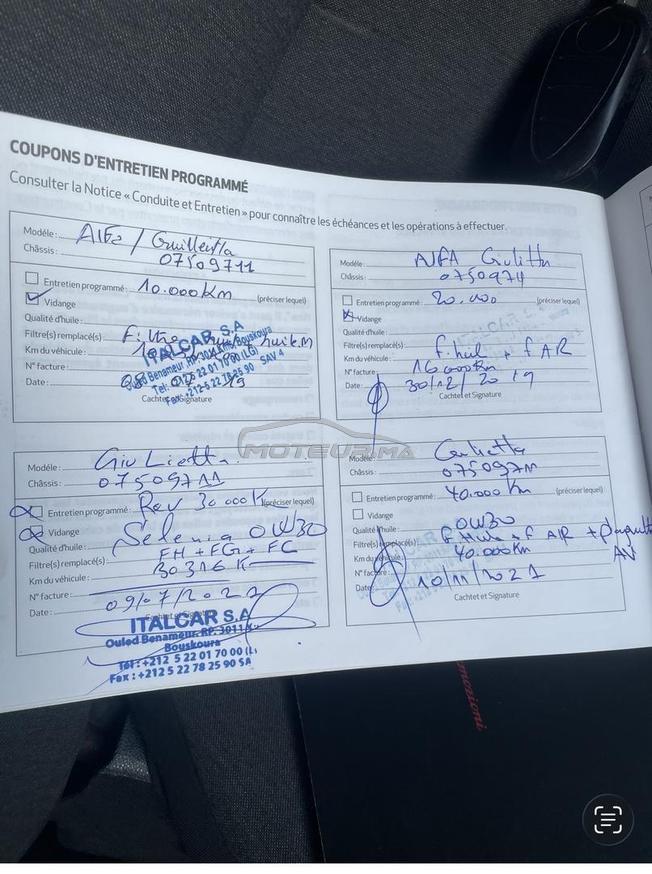 COUPONS D'ENTRETIEN PROGRAMMÉ
Consulter la Notice « Conduite et Entretien » pour connaître les échéances et les opérations à effectuer.
Modèle :
Châssis : 07509711
Entretien programmé : 10.000Km (préciser lequel)
Vidange
Qualité d'huile :
Filtre(s) remplacé(s) :
Km du véhicule :
N° facture :
Date :
Cachet et Signature
ITALCAR S.A
Tel: +212 5 22 01 70 00 (LG)
Fax: +212 5 22 78 25 90 SAV 4
Modèle : Giulitta
Châssis :
Entretien programmé : 20.000 (préciser lequel)
Vidange
Qualité d'huile :
Filtre(s) remplacé(s) : f.hul + f AR
Km du véhicule : 16000Km
N° facture :
Date : 30/12/2019
Cachtet et Signature
MOTEUR.MA
Modèle : Giulietta
Châssis : 07509711
Entretien programmé : Rev 30 000K (préciser lequel)
Vidange
Qualité d'huile : Selenia 0W30
Filtre(s) remplacé(s) : FH + FG + FC
Km du véhicule : 30316K
N° facture :
Date : 09/07/2021
Cachtet et Signature
ITALCAR S.A
Ouled Benameur, RP. 3011 K
Bouskoura
Tél : +212 5 22 01 70 00 (L
Fax : +212 5 22 78 25 90 SA
Modèle :
Châssis :
Entretien programmé : 40.000 Km (préciser lequel)
Vidange
Qualité d'huile : 0W30
Filtre(s) remplacé(s) : + f AIR +
AV
Km du véhicule : 40.000Km
N° facture :
Date : 10/11/2021
Cachtet et Signature